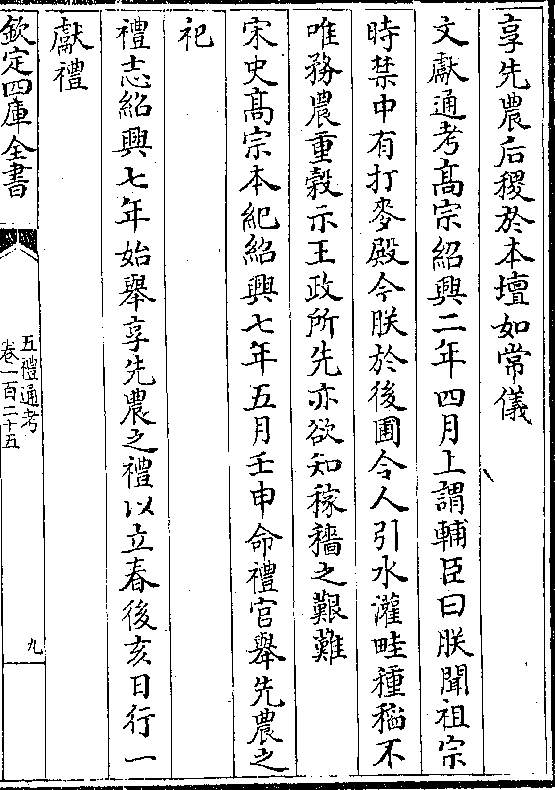 享先農后稷於本壇如常儀
文獻通考髙宗紹興二年四月上謂輔臣曰朕聞祖宗
時禁中有打麥殿今朕於後圃令人引水灌畦種稻不
唯務農重穀示王政所先亦欲知稼穡之艱難
宋史髙宗本紀紹興七年五月壬申命禮官舉先農之
祀
禮志紹興七年始舉享先農之禮以立春後亥日行一
獻禮
欽定四庫全書
五禮通考
卷一百二十五
九